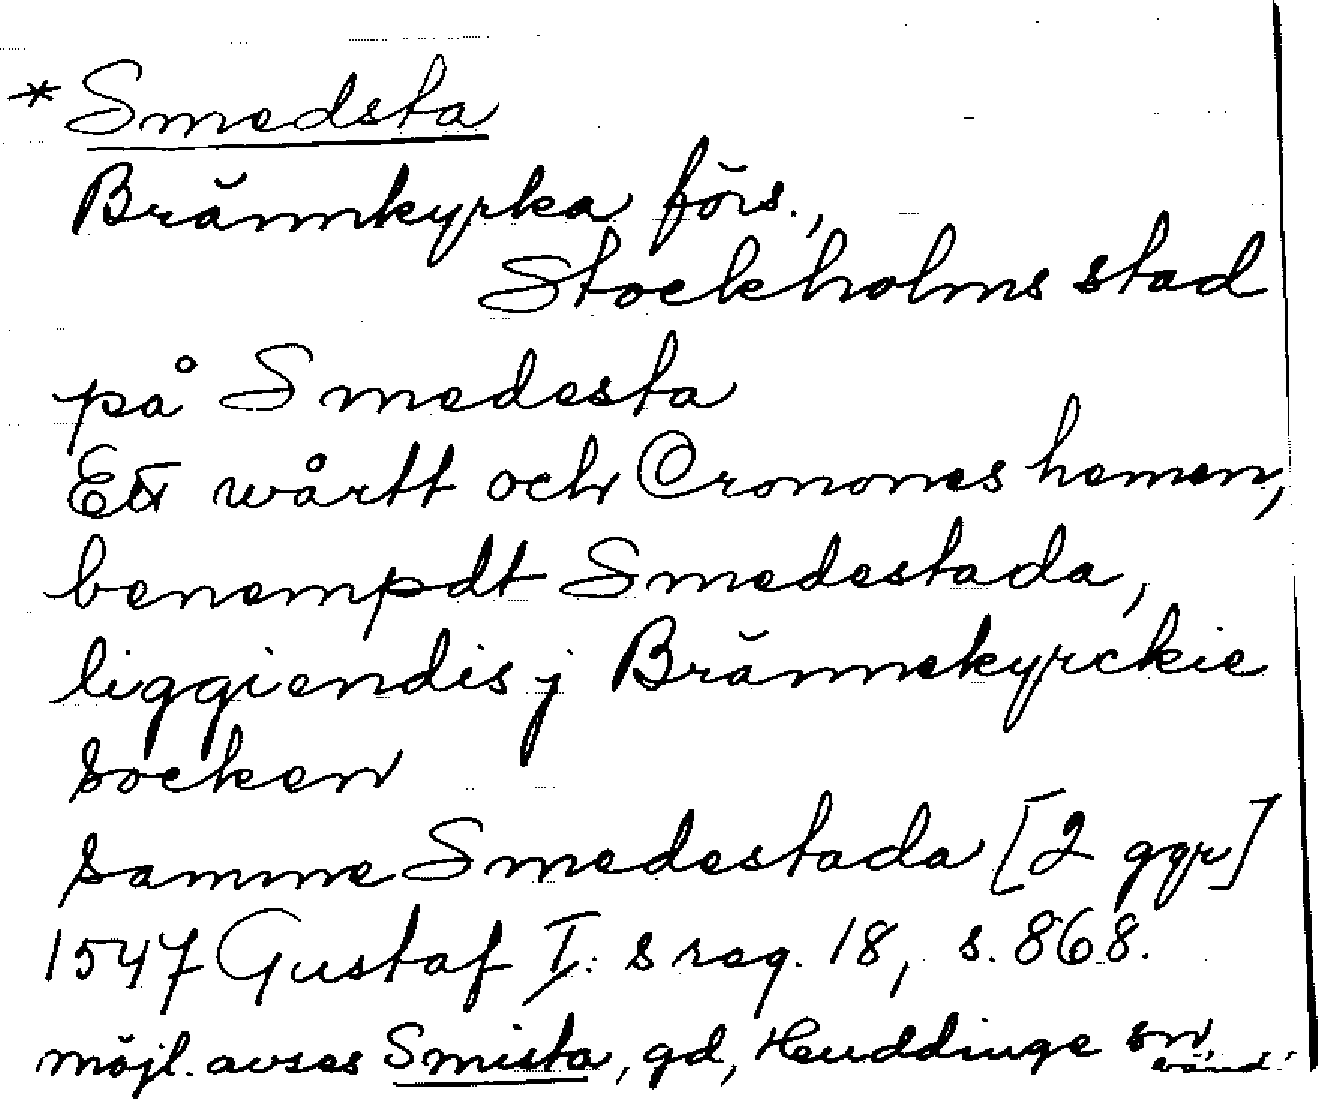 *Smedsta
Brännkyrka förs.,
Stockholms stad
på Smedesta
Ett wårtt och Cronones hemen,
benempdt Smedestada,
liggiendis j Brännekyrckie
socken
samme Smedestada [2 ggr]
1547 Gustaf I:s reg. 18, s. 868.
möjl. avses Smista, gd, Huddinge sn,
vänd.